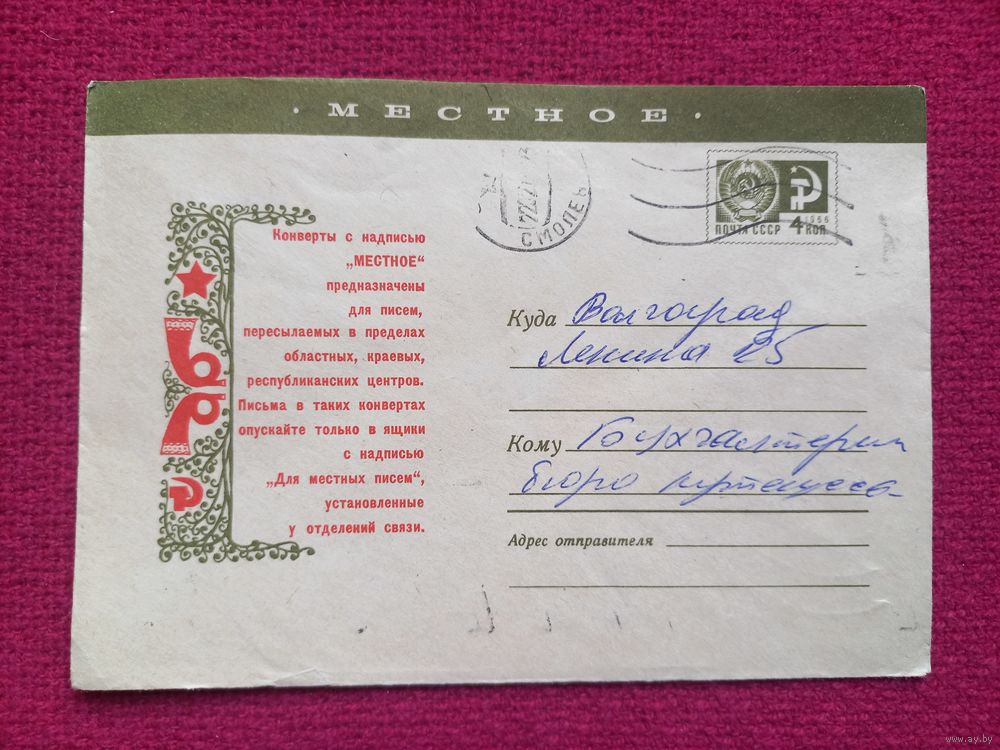 · МЕСТНОЕ ·
СМОЛЕВ
1966
ПОЧТА СССР 4 КОП
Конверты с надписью
„МЕСТНОЕ“
предназначены
для писем,
пересылаемых в пределах
областных, краевых,
республиканских центров.
Письма в таких конвертах
опускайте только в ящики
с надписью
„Для местных писем“,
установленные
у отделений связи.
Куда Волгоград
Ленина 25
Кому Бухгалтерии
бюро
Адрес отправителя
www.ay.by